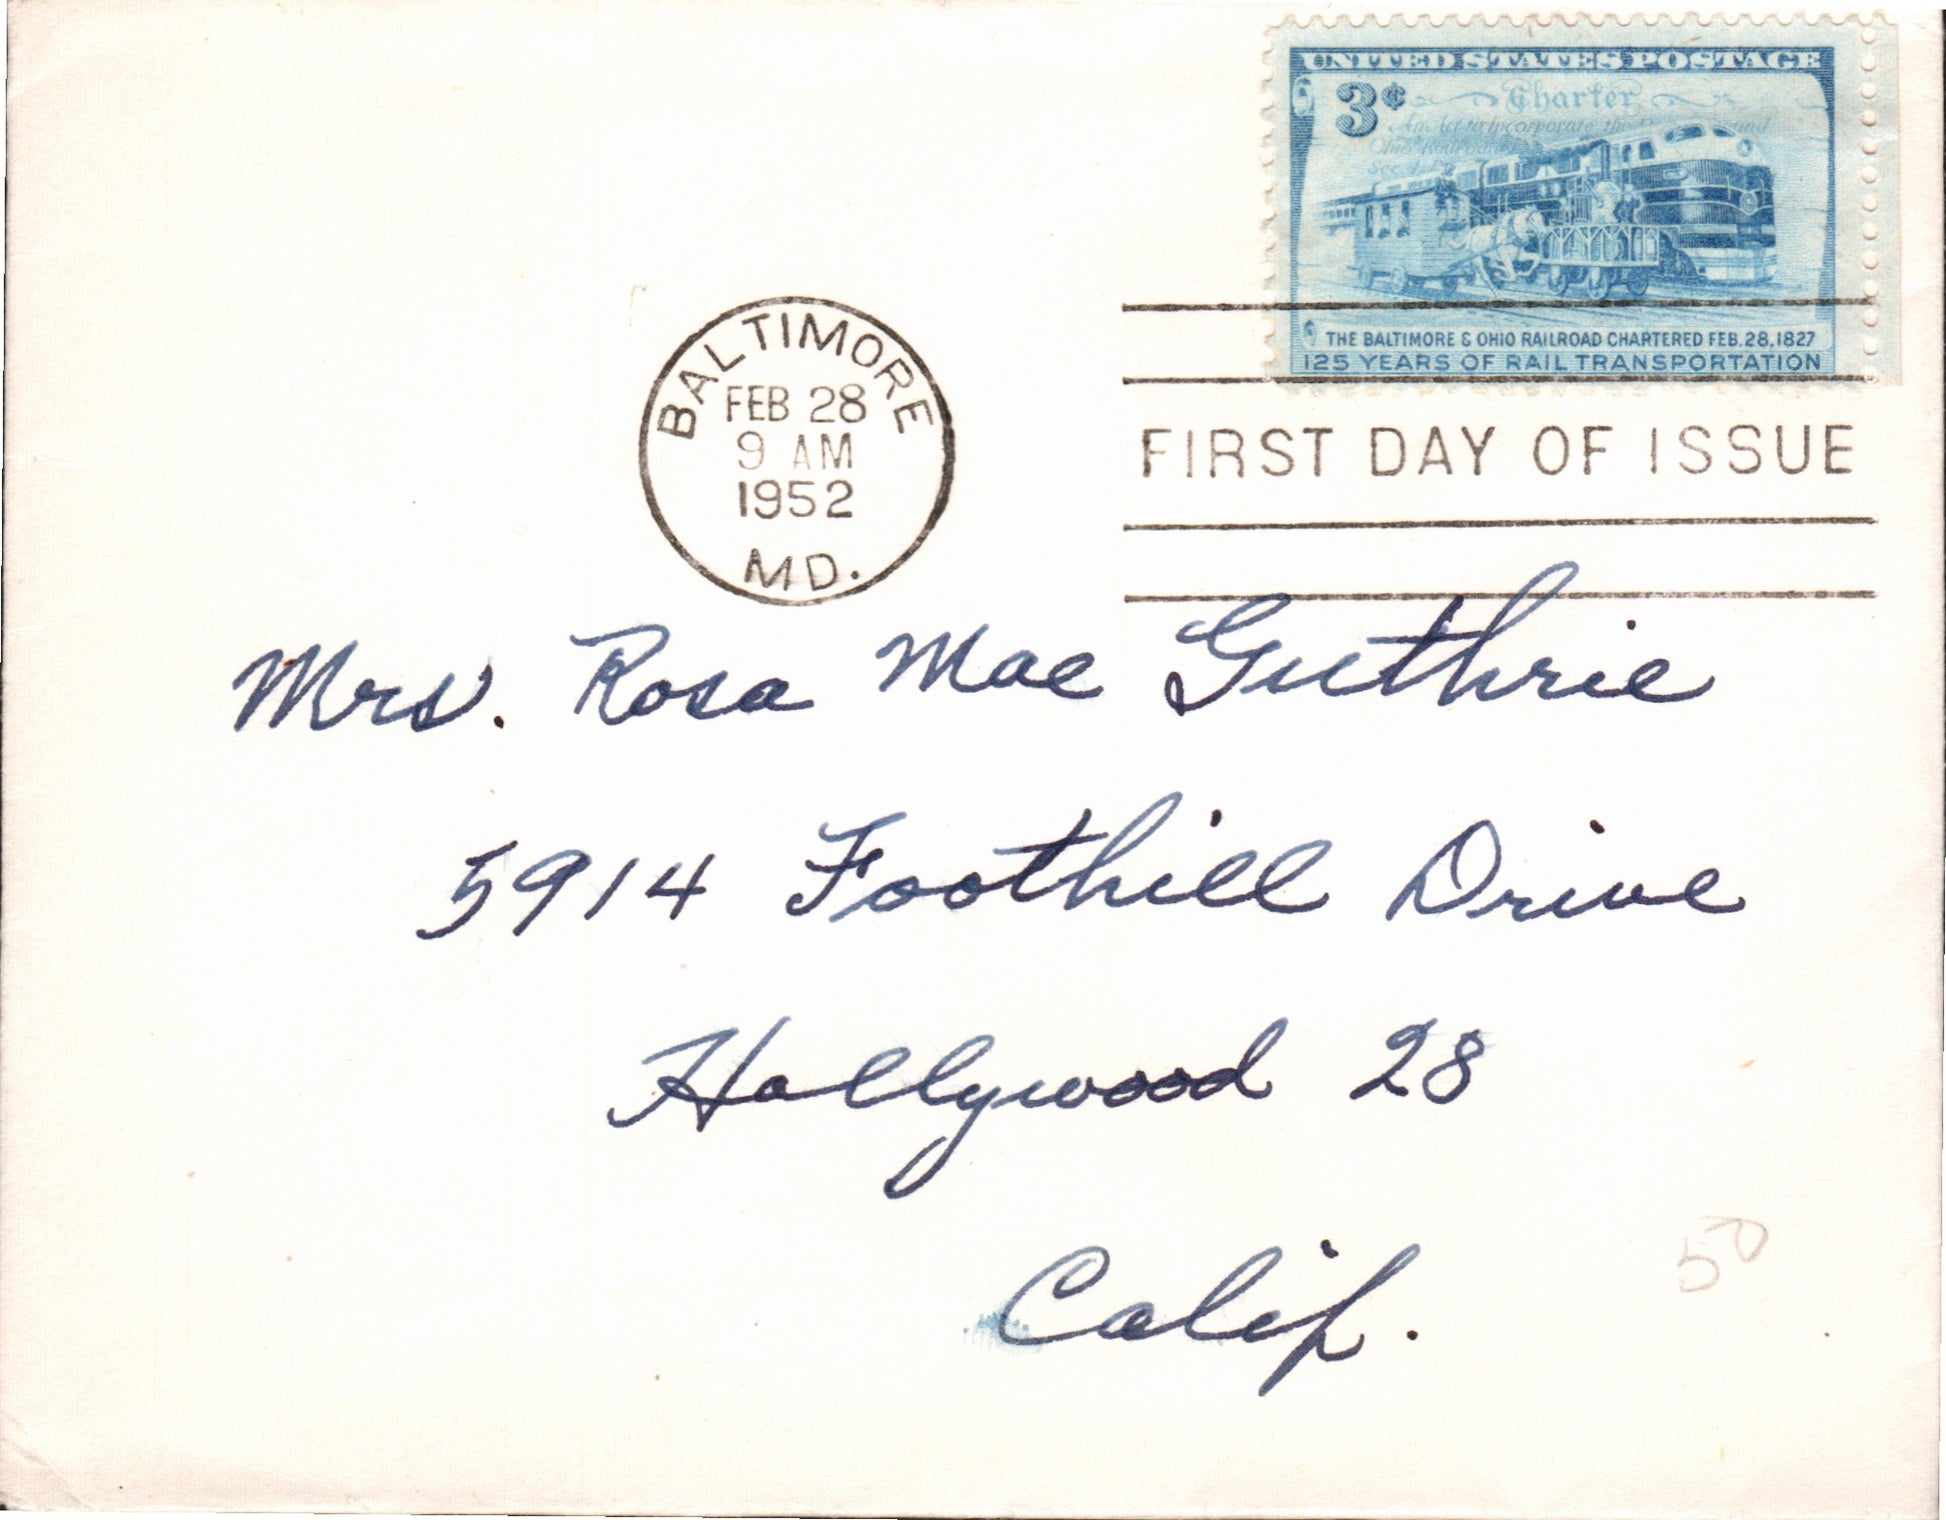 UNITED STATES POSTAGE
3¢
Charter
An Act to incorporate the
THE BALTIMORE & OHIO RAILROAD CHARTERED FEB. 28, 1827
125 YEARS OF RAIL TRANSPORTATION
BALTIMORE
FEB 28
9 AM
1952
MD.
FIRST DAY OF ISSUE
Mrs. Rosa Mae Guthrie
5914 Foothill Drive
Hollywood 28
Calif.
50